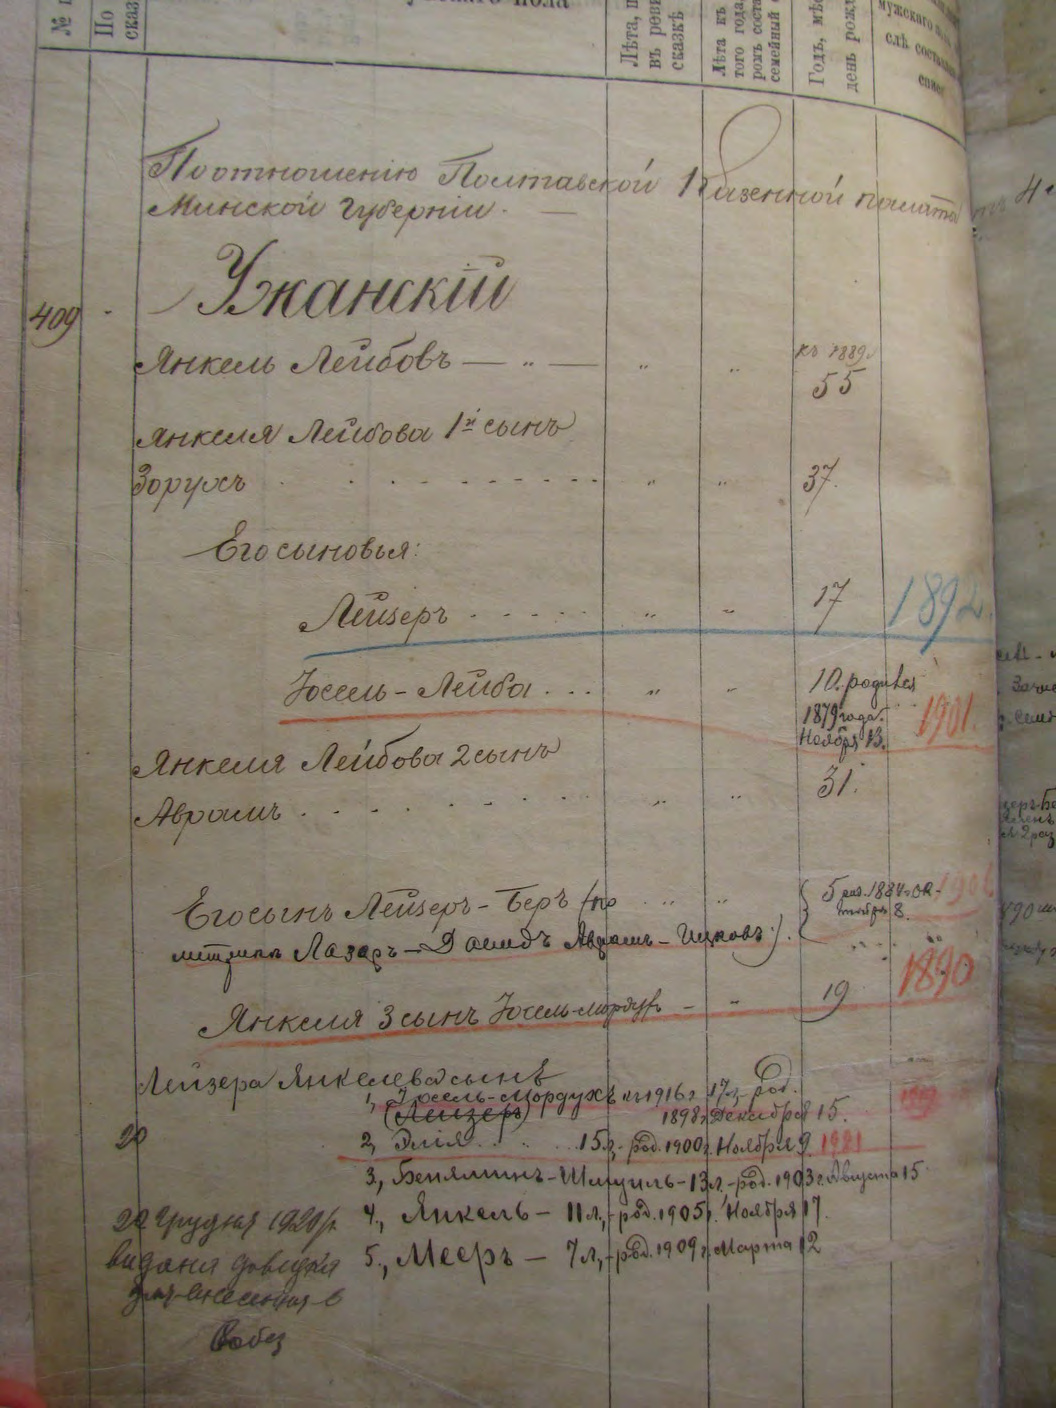 №
По
сказ
Лѣта,
въ реви
сказкѣ
Лѣта къ
того года,
ромъ соста
семейный с
Годъ, мѣс
день рожд
мужскаго
слѣ состав
списк
По отношенію Полтавской Казенной палаты
Минской губерніи. —
Ужанскій
409
Янкель Лейбовъ — „ — „ „ къ 1889.
55
Янкеля Лейбова 1й сынъ
Зорухъ „ „ 37.
Его сыновья:
Лейзеръ „ „ 17 1892.
Іосель-Лейба „ „ 10. родился
1879 года.
Ноября 13. 1901.
Янкеля Лейбова 2 сынъ
31.
Абрамъ „ „
Его сынъ Лейзеръ-Беръ (по „ „ 5 род. 1884 ок-
тября 8.
метрикѣ Лазаръ-Давидъ Абрамъ-Ицковъ).
Янкеля 3 сынъ Іосель-Мордух - „ 19 1890
Лейзера Янкелева сынъ
1, Іосель-Мордухъ къ 1916 г. 17 л. род.
(Лейзеръ) 1898 г. Декабря 15.
20 2, Элія 15 л. род. 1900 г. Ноября 9. 1921
3, Беньяминъ-Шмуиль-13 л,-род. 1903 г. Августа 15
20 Грудня 1920 р. 4., Янкель - 11 л,-род. 1905 г. Ноября 17.
видана довидка 5., Мееръ - 7 л,-род. 1909 г. Марта 12